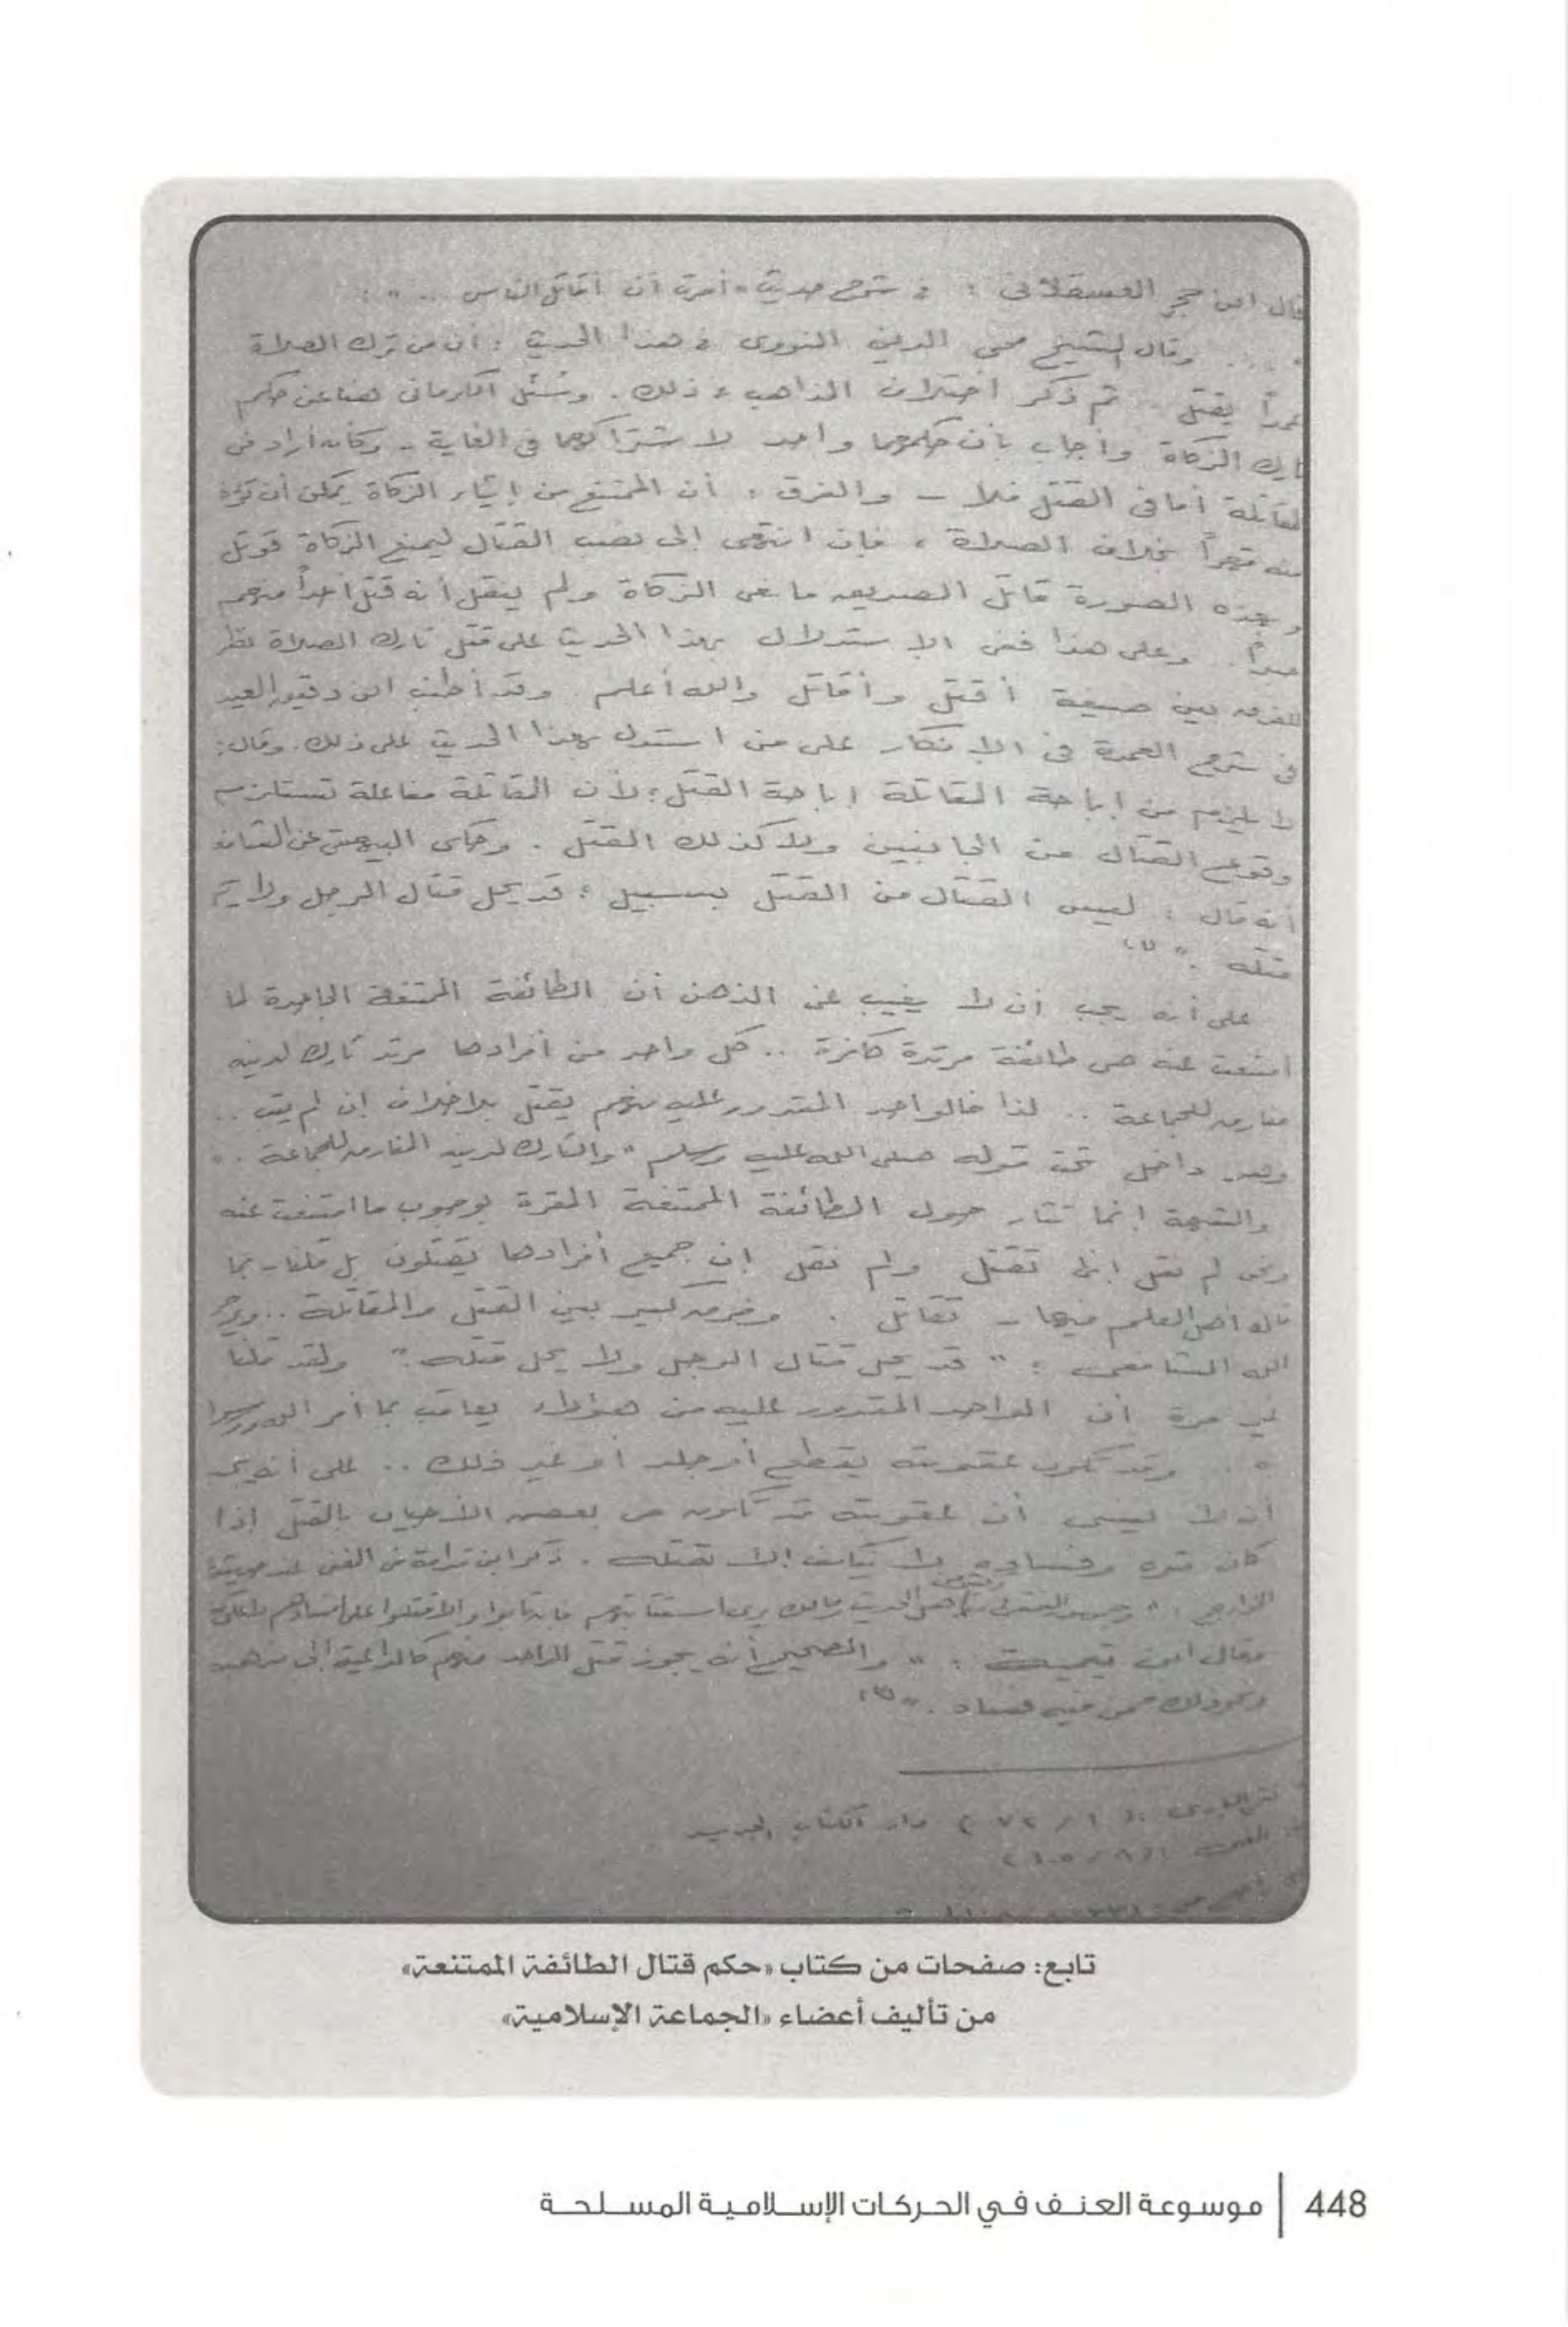 قال ابن حجر العسقلانى : فى شرح حديث " أمرت أن أقاتل الناس ... " :
" ... وقال الشيخ محى الدين النووى فى هذا الحديث : أن من ترك الصلاة
عمداً يقتل .. ثم ذكر اختلاف المذاهب فى ذلك . وسُئل الكرمانى هنا عن حكم
تارك الزكاة وأجاب بأن حكمهما واحد لاشتراكهما فى الغاية - وكأنه أراد فى
المقاتلة أما فى القتل فلا - والفرق : أن الممتنع من إيتاء الزكاة يمكن أن تؤخذ
منه قهراً بخلاف الصلاة ، فإن انتهى إلى نصب القتال ليمنع الزكاة قوتل
وبهذه الصورة قاتل الصديق مانعى الزكاة ولم ينقل أنه قتل أحداً منهم
صبراً . وعلى هذا ففى الاستدلال بهذا الحديث على قتل تارك الصلاة نظر
للفرق بين صيغة أقتل وأقاتل والله أعلم . وقد أطنب ابن دقيق العيد
فى شرح العمدة فى الإنكار على من استدل بهذا الحديث على ذلك . وقال :
لا يلزم من إباحة المقاتلة إباحة القتل ؛ لأن المقاتلة مفاعلة تستلزم
وقوع القتال من الجانبين ولا كذلك القتل . وحكى البيهقى عن الشافعى
أنه قال : ليس القتال من القتل بسبيل ؛ قد يحل قتال الرجل ولا يحل
قتله . " (١)
على أنه يجب أن لا يغيب عن الذهن أن الطائفة الممتنعة الجاحدة لما
امتنعت عنه هى طائفة مرتدة كافرة .. كل واحد من أفرادها مرتد تارك لدينه
مفارق للجماعة .. لذا فالواحد المقدور عليه منهم يقتل بلا خلاف إن لم يتب ..
وهو داخل تحت قوله صلى الله عليه وسلم " والتارك لدينه المفارق للجماعة . "
والشبهة إنما تثار حول الطائفة الممتنعة المقرة بوجوب ما امتنعت عنه
ونحن لم نقل إنها تقتل ولم نقل إن جميع أفرادها يقتلون بل قلنا - بما
قاله أهل العلم فيها - تقاتل . وفرق كبير بين القتل والمقاتلة .. ويرحم
الله الشافعى : " قد يحل قتال الرجل ولا يحل قتله . " ولقد قلنا
غير مرة أن الواحد المقدور عليه من هؤلاء يعاقب بما أمر الله ورسوله
به .. وقد تكون عقوبته بقطع أو جلد أو غير ذلك .. على أنه يجب
أن لا ينسى أن عقوبته قد تكون فى بعض الأحيان بالقتل إذا
كان شره وفساده لا يكف إلا بقتله . ذكر ابن قدامة فى المغنى عند حديثه
الخوارج : " وجمهور الفقهاء أهل الحديث ومالك يرى استتابتهم فإن تابوا وإلا قتلوا على إفسادهم لا على
وقال ابن تيمية : " والصحيح أنه يجوز قتل الواحد منهم كالداعية إلى مذهبه
ونحو ذلك ممن فيه فساد . " (٣)
فتح البارى : ( ١ / ٧٢ ) دار الكتاب الجديد
المغنى : ( ٨ / ١٠٥ )
تابع: صفحات من كتاب «حكم قتال الطائفة الممتنعة»
من تأليف أعضاء «الجماعة الإسلامية»
448 | موسوعة العنف في الحركات الإسلامية المسلحة